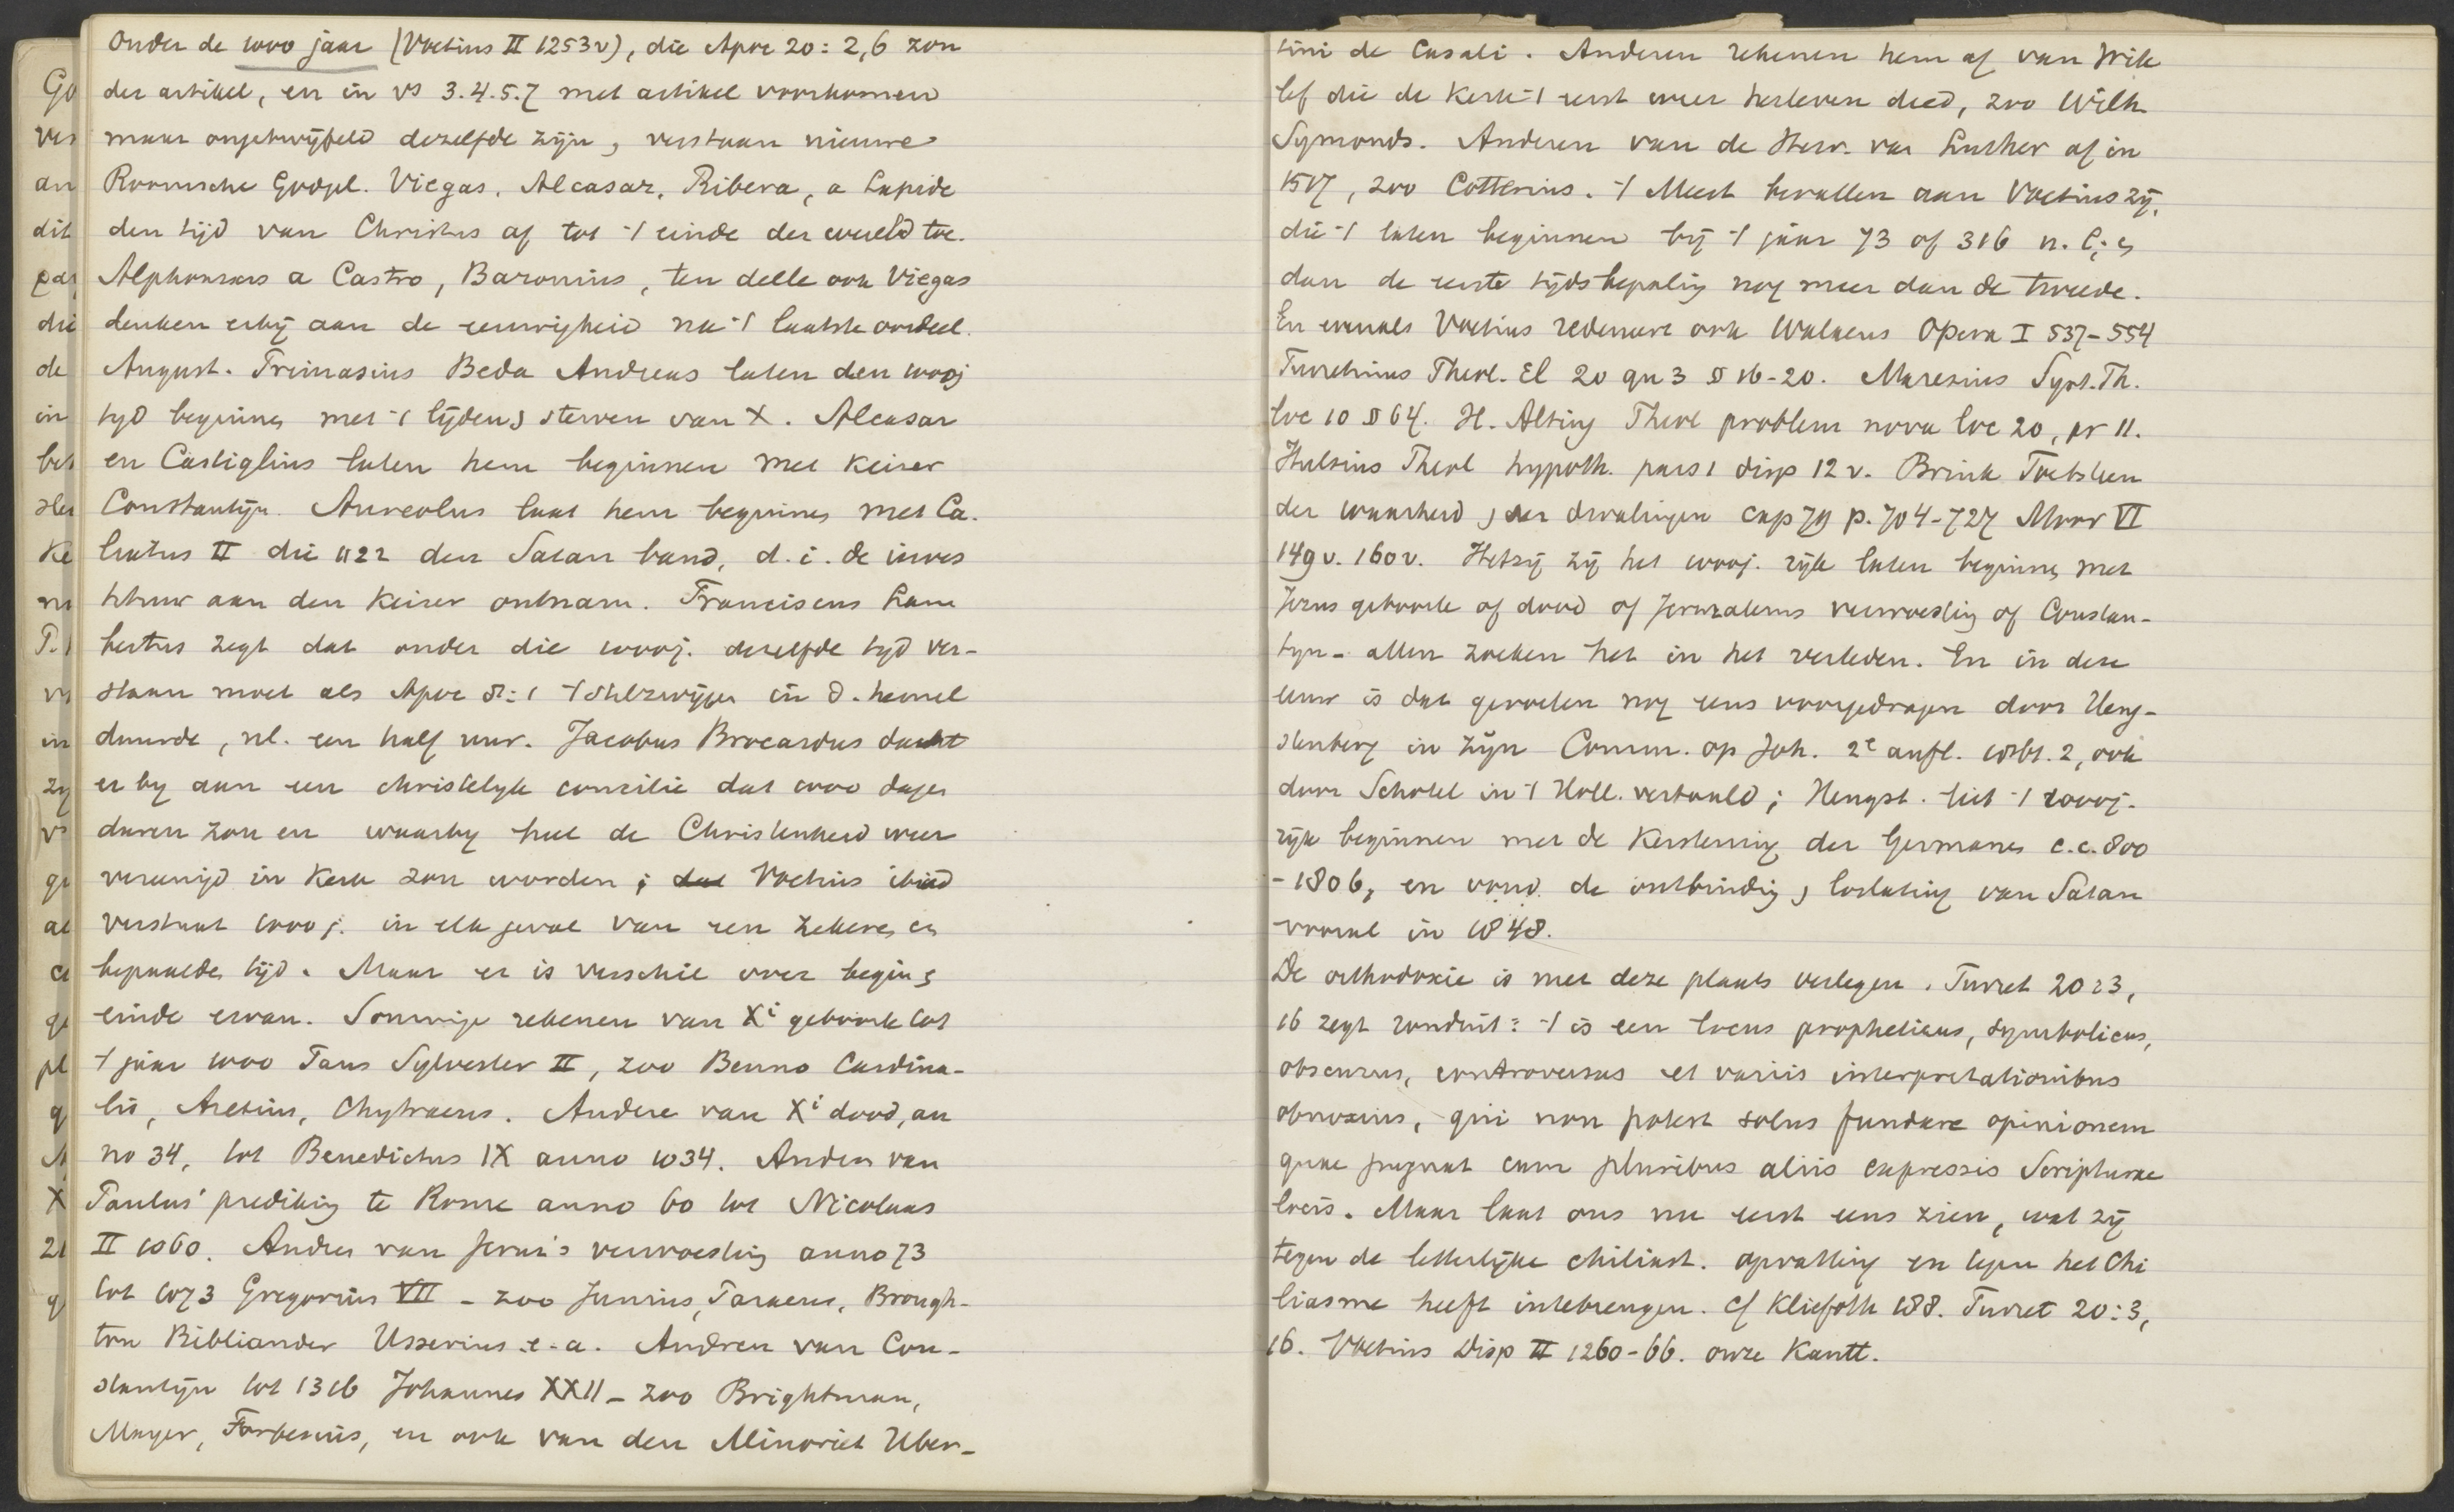 Onder de 1000 jaar (Voetius II 1253v), die Apoc 20: 2,6 zon
der artikel, en in vs 3.4.5.7 met artikel voorkomen
maar ongetwijfeld dezelfde zijn, verstaan nieuwe
Roomsche Godgel. Viegas, Alcasar, Ribera, a Lapide
den tijd van Christus af tot 't einde der wereld toe.
Alphonsus a Castro, Baronius, ten deele ook Viegas
denken erbij aan de eeuwigheid na 't laatste oordeel.
August. Primasius Beda Andreas laten den 1000j
tijd beginnen met 't lijden & sterven van X. Alcasar
en Castiglius laten hem beginnen met Keizer
Constantijn. Aureolus laat hem beginnen met Ca-
lixtus II die 1122 den Satan band, d.i. de inves
tituur aan den Keizer ontnam. Franciscus Lam
bertus zegt dat onder die 1000j. dezelfde tijd ver-
staan moet als Apoc 8:1 't stilzwijgen in d. hemel
duurde, nl. een half uur. Jacobus Brocardus dacht
er bij aan een christelijk concilie dat 1000 dagen
duren zou en waarbij heel de Christenheid weer
vereenigd in Kerk zou worden; dat Voetius ibid
verstaat 1000 j. in elk geval van een zekere, en
bepaalde tijd. Maar er is verschil over begin &
einde ervan. Sommige rekenen van Xi geboorte tot
't jaar 1000 Paus Sylvester II, zoo Benno Cardina-
lis, Aretius, Chytraeus. Andere van Xi dood, an
no 34, tot Benedictus IX anno 1034. Anderen van
Paulus' prediking te Rome anno 60 tot Nicolaas
II 1060. Anderen van Jeruz's verwoesting anno 73
tot 1073 Gregorius VII – zoo Junius, Paraeus, Brough-
ton Bibliander Usserius e.a. Anderen van Con-
stantijn tot 1316 Johannes XXII – zoo Brightman,
Mayer, Forbesius, en ook van den Minoriet Uber-
tini de Casali. Anderen rekenen hem af van Wik
lef die de Kerk 't eerst weer herleven deed, zoo Wilh.
Symonds. Anderen van de Herv. van Luther af in
1517, zoo Cotterius. 't Meest bevallen aan Voetius zij,
die 't laten beginnen bij 't jaar 73 of 316 n. C; &
dan de eerste tijdsbepaling nog meer dan de tweede.
En evenals Voetius redeneert ook Walaeus Opera I 537–554
Turretinus Theol. El 20 qu 3 § 16-20. Maresius Syst. Th.
loc 10 § 64. H. Alting Theol problem nova loc 20, pr 11.
Hulsius Theol hypoth. pars 1 disp 12 v. Brink Toetsteen
der waarheid & der dwalingen cap 79 p. 704-727 Moor VI
149 v. 160 v. Hetzij zij het 1000j. rijk laten beginnen met
Jezus geboorte of dood of Jeruzalems verwoesting of Constan-
tijn – allen zoeken het in het verleden. En in deze
eeuw is dat gevoelen nog eens voorgedragen door Heng-
stenberg in zijn Comm. op Joh. 2e aufl. 1861. 2, ook
door Schotel in 't Holl. vertaald; Hengst. liet 't 1000j-
rijk beginnen met de Kerstening der Germanen c.c. 800
– 1806, en vond de ontbinding & loslating van Satan
vooral in 1848.
De orthodoxie is met deze plaats verlegen. Turret 20:3,
16 zegt ronduit: 't is een locus propheticus, symbolicus,
obscurus, controversus et variis interpretationibus
obnoxius, qui non potest solus fundare opinionem
quae pugnat cum pluribus aliis expressis Scripturae
locis. Maar laat ons nu eerst eens zien, wat zij
tegen de letterlijke chiliast. opvatting en tegen het Chi
liasme heeft intebrengen. Cf Kliefoth 188. Turret 20:3,
16. Voetius Disp II 1260-66. onze Kantt.